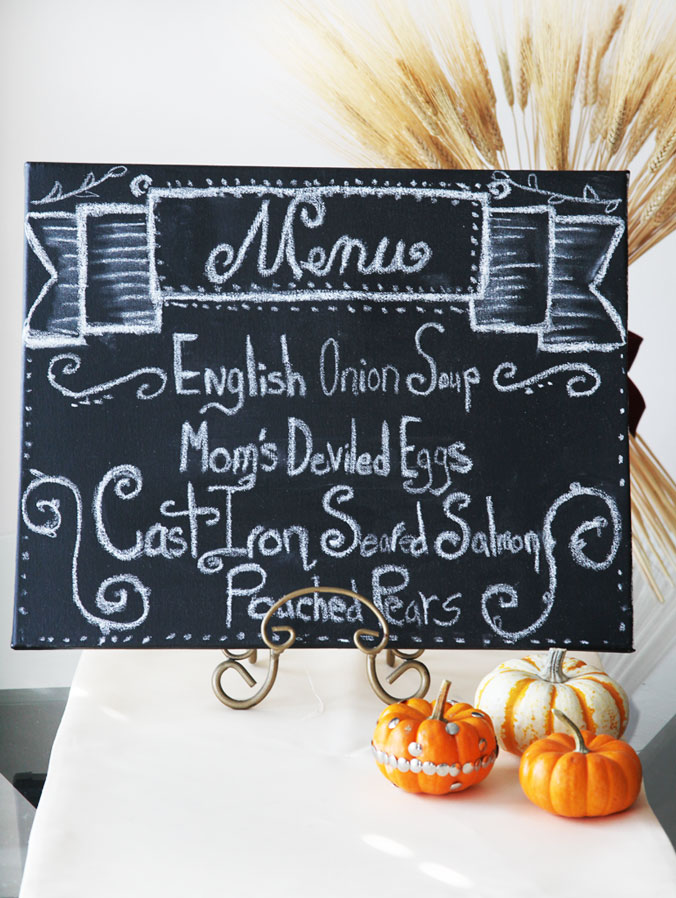 Menu
English Onion Soup
Mom's Deviled Eggs
Cast Iron Seared Salmon
Pouched Pears